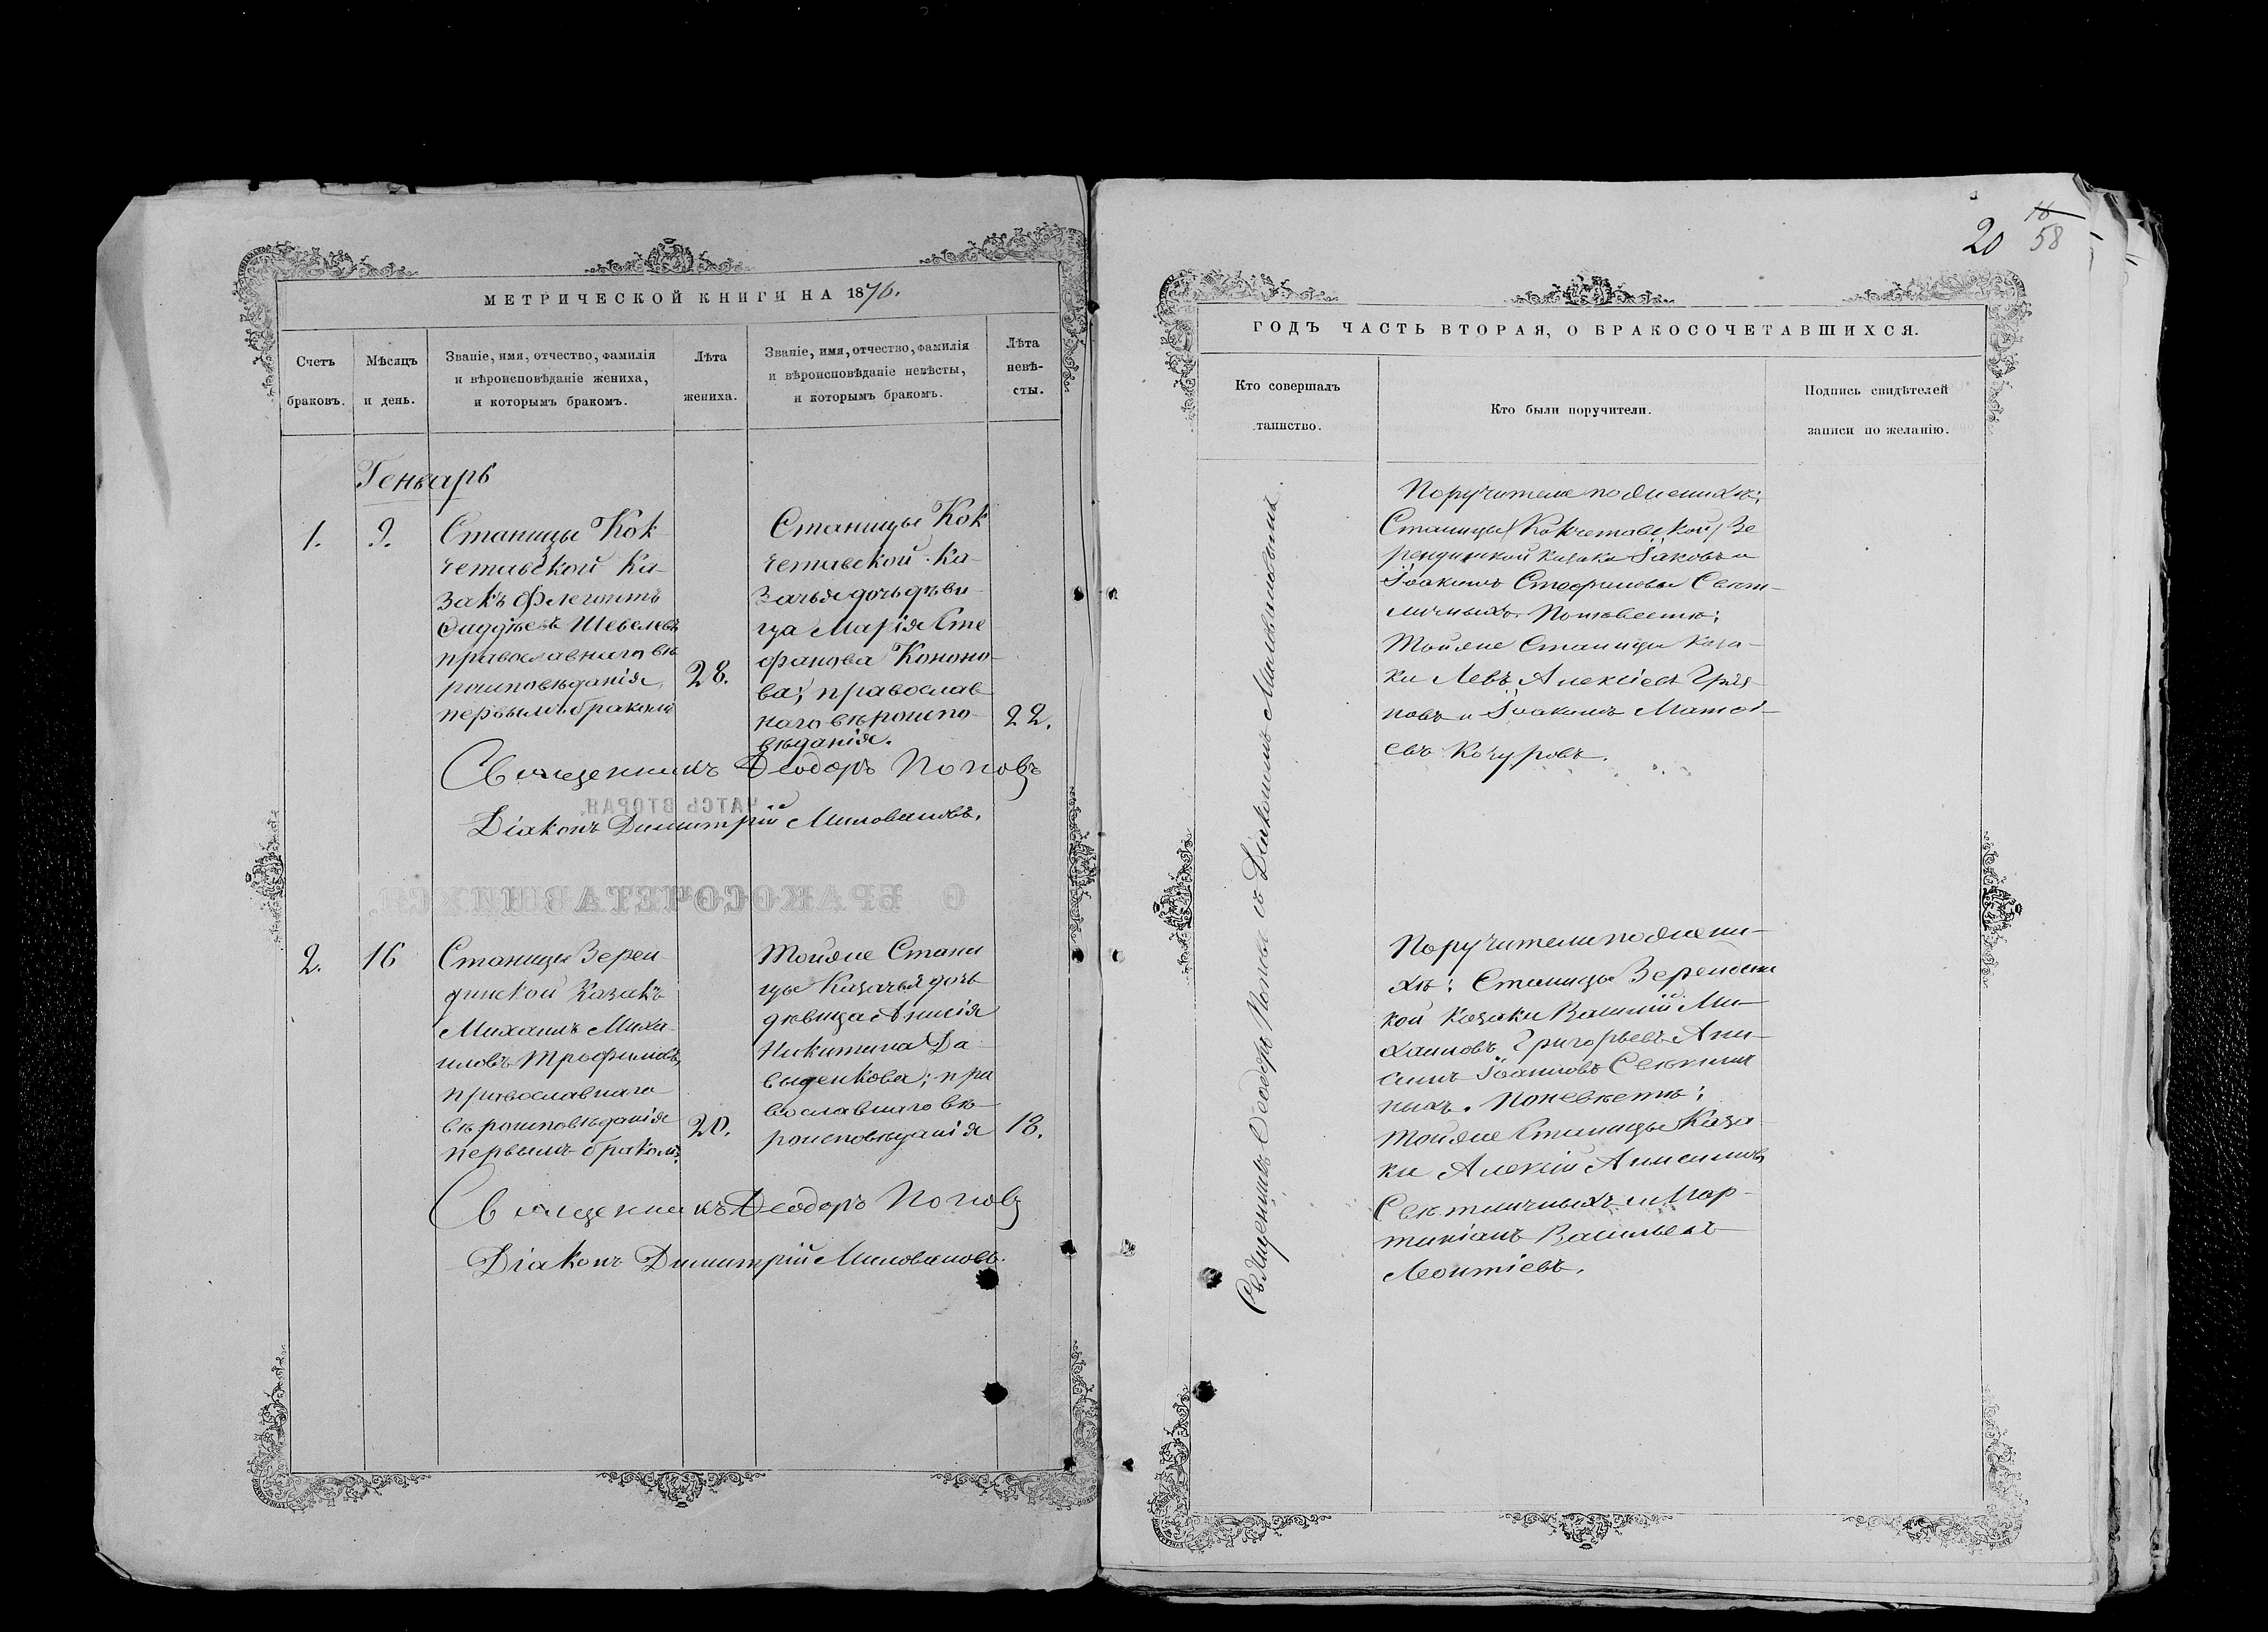 МЕТРИЧЕСКОЙ КНИГИ НА 1876.
Счетъ
браковъ.
Мѣсяцъ
и день.
Званіе, имя, отчество, фамилія
и вѣроисповѣданіе жениха,
и которымъ бракомъ.
Лѣта
жениха.
Званіе, имя, отчество, фамилія
и вѣроисповѣданіе невѣсты,
и которымъ бракомъ.
Лѣта
невѣ-
сты.
Генварь
1.
9.
Станицы Кок
четавской Ка-
закъ Флегонтъ
Шевелевъ
православнаго вѣ
роисповѣданія,
первымъ бракомъ
28.
Станицы Кок
четавской Ка-
зачья дочь дѣви-
ца Марія Сте
фанова Кононо-
ва; православ
наго вѣроиспо-
вѣданія.
22.
Священникъ Ѳеодоръ Поповъ
Діаконъ Димитрій Миловановъ.
ЧАТСЬ ВТОРАЯ,
О БРАКОСОЧЕТАВШИХСЯ.
2.
16
Станицы Зерен
динской Казакъ
Михаилъ Миха
иловъ Трофимовъ,
православнаго
вѣроисповѣданія
первымъ бракомъ.
20.
Тойже Стани
цы Казачья дочь
дѣвица Анисія
Никитина Да
выденкова; пра
вославнаго вѣ-
роисповѣданія
18.
Священникъ Ѳеодоръ Поповъ
Діаконъ Димитрій Миловановъ.
20
16
58
ГОДЪ ЧАСТЬ ВТОРАЯ, О БРАКОСОЧЕТАВШИХСЯ.
Кто совершалъ
таинство.
Кто были поручители.
Подпись свидѣтелей
записи по желанію.
Священникъ Ѳеодоръ Поповъ съ Діакономъ Миловановымъ.
Поручители по женихѣ;
Станицы Кокчетавской Зе
рендинской казаки Іаковъ и
Іоакимъ Стефановы Свѣт-
личныхъ. По невѣстѣ;
Тойже Станицы Каза-
ки Левъ Алексіевъ Гряз-
новъ и Іоакимъ Матѳі-
евъ Кочуровъ.
Поручители по жени-
хѣ: Станицы Зерендинс
кой Казаки Василій Ми-
хаиловъ Григорьевъ Ани-
симъ Іоанновъ Свѣтлич
ныхъ. По невѣстѣ;
Тойже Станицы Каза
ки Алексій Анисимовъ
Свѣтличныхъ и Мар-
тиніанъ Васильевъ
Леонтіевъ.